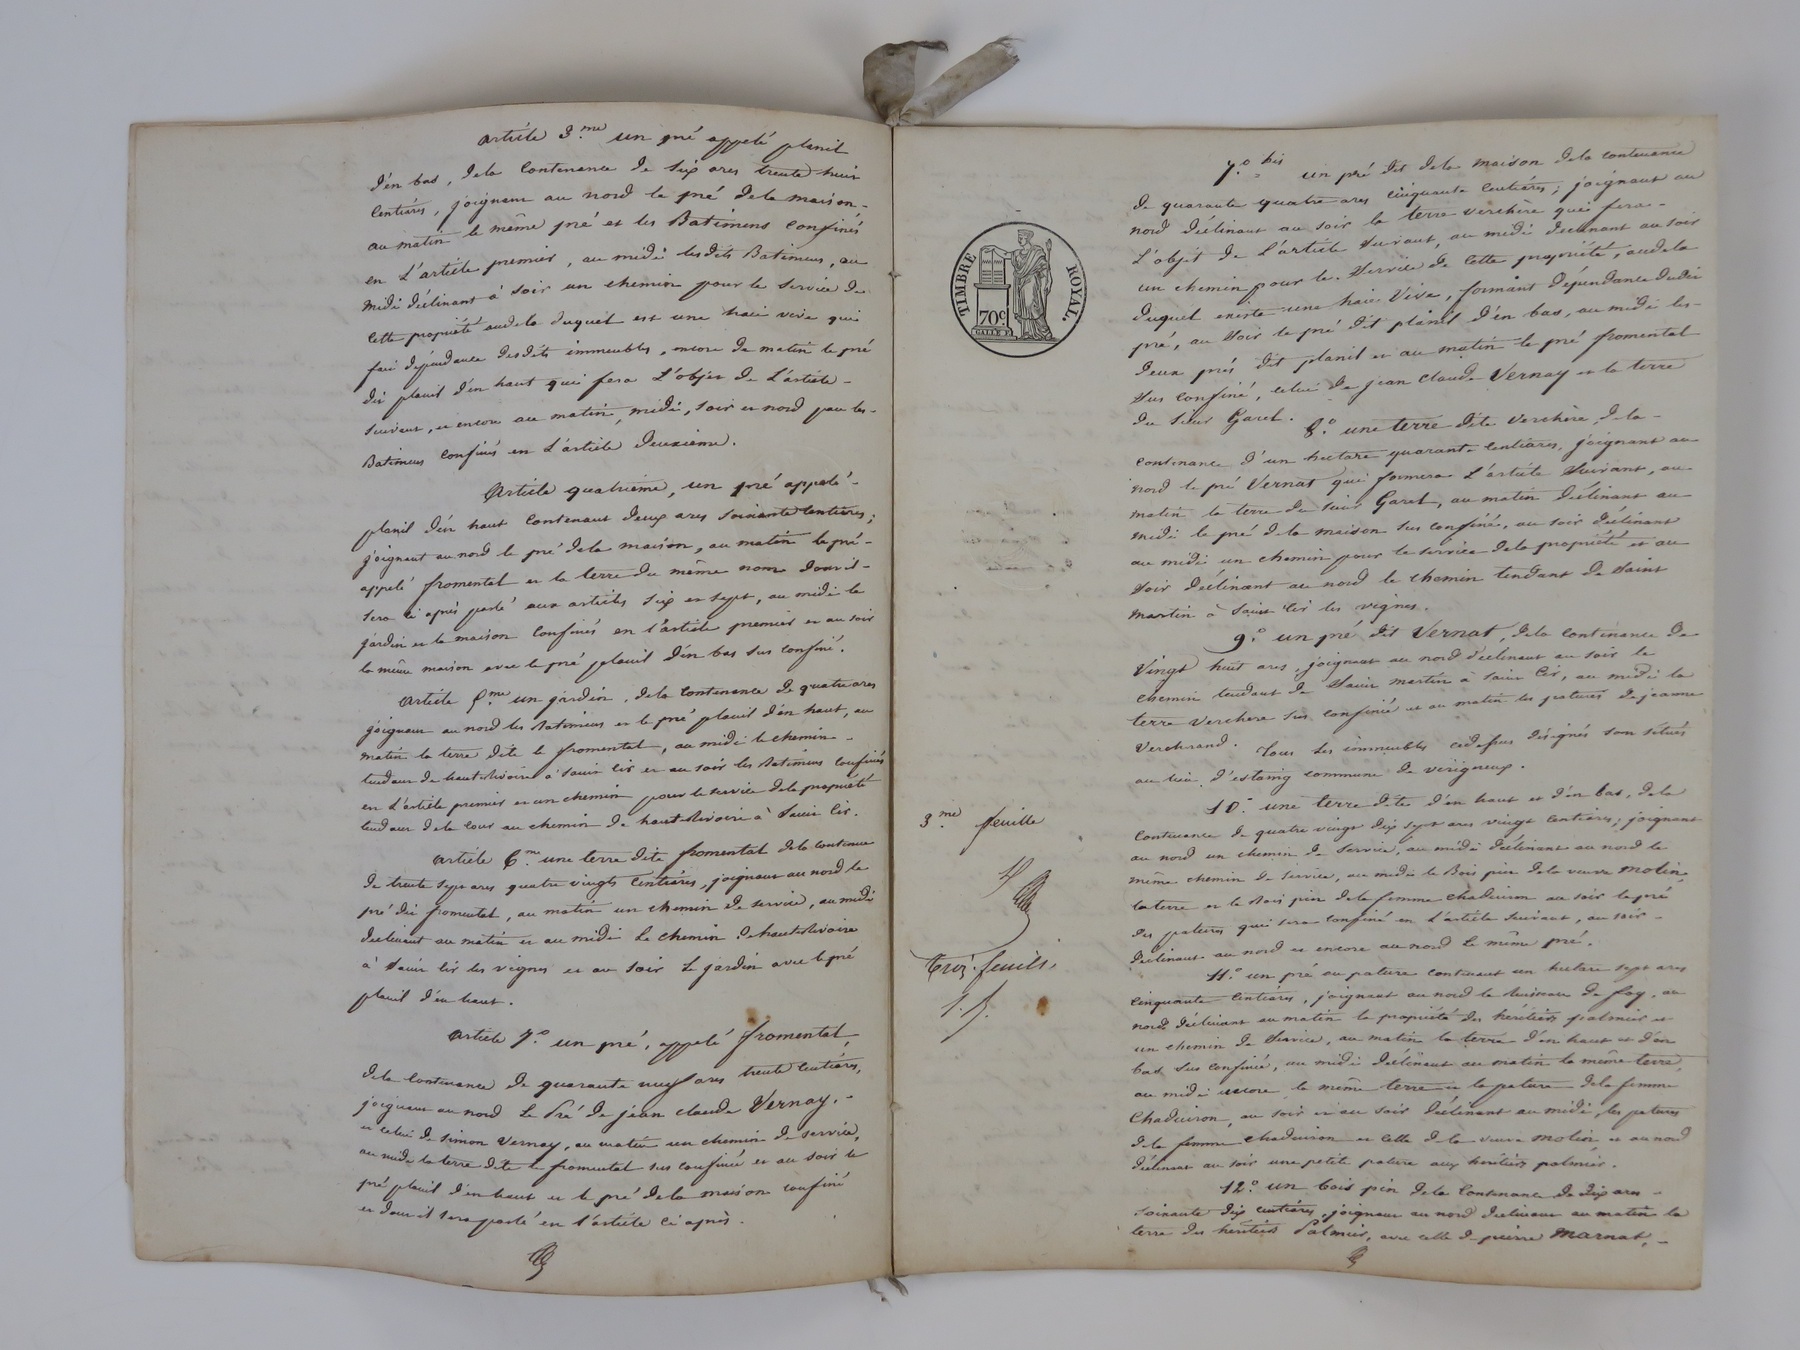 article 3.me un pré appelé planil
d'én bas, dela Contenance de six ares trente huit
Centiares, joignant au nord le pré dela maison-
au matin le même pré et les Batimens confinés
en L'article premier, au midi lesdits Batimens, au
midi déclinant à soir un chemin pour le service de
cette propriété audela duquel est une haie vive qui
fait dépendance desdits immeubles, encore de matin le pré
dit planil d'én haut qui fera L'objet de L'article-
suivant, et encore au matin, midi, soir et nord par les-
Batimens confinés en L'article deuxième.
Article quatrième, un pré appelé-
planil d'én haut Contenant deux ares soixante Centiares;
joignant au nord le pré dela maison, au matin le pré-
appelé fromental et la terre du même nom dont il-
sera ci après parlé aux articles six et sept, au midi le
jardin et la maison Confinés en l'article premier et au soir
la même maison avec le pré planil d'én bas sus confiné.
Article 5.me un jardin, dela Contenance de quatre ares
joignant au nord les Batimens et le pré planil d'én haut, au
matin la terre dite le fromental, au midi le chemin-
tendant de haut-Rivoire à Saint Cir et au soir les Batimens Confinés
en L'article premier et un chemin pour le service dela propriété
tendant dela cour au chemin de haut-Rivoire à Saint Cir.
article 6.me une terre dite fromental dela contenance
de trente sept ares quatre vingts Centiares, joignant au nord le
pré dit fromental, au matin un chemin de service, au midi
déclinant au matin et au midi Le chemin de haut-Rivoire
à Saint Cir les vignes et au soir Le jardin avec le pré
planil d'én haut.
article 7.o un pré, appelé fromental,
dela Contenance de quarante neuf ares trente Centiares,
joignant au nord Le Pré de jean claude Vernay,-
et celui de Simon Vernay, au matin un chemin de service,
au midi la terre dite le fromental sus confinée et au soir le
pré planil d'én haut et le pré dela maison confiné
et dont il sera parlé en l'article ci après.
TIMBRE ROYAL.
70c
3.me feuille
troiz. feuille.
7.o bis un pré dit dela maison dela contenance
de quarante quatre ares cinquante Centiares; joignant au
nord déclinant au soir la terre verchère qui fera-
L'objet de L'article suivant, au midi déclinant au soir
un chemin pour le service de cette propriété, audela
duquel existe une haie Vive, formant dépendance dudit
pré, au soir le pré dit planil d'én bas, au midi les-
deux prés dit planil et au matin le pré fromental
sus confiné, celui de jean claude Vernay et la terre
du sieur Garet.
8.o une terre dite verchère, dela-
Contenance d'un hectare quarante Centiares, joignant au
nord le pré Vernat qui formera L'article suivant, au
matin la terre du sieur Garet, au matin déclinant au
midi le pré dela maison sus confiné, au soir déclinant
au midi un chemin pour le service dela propriété et au
soir déclinant au nord le chemin tendant de Saint
martin à Saint Cir les vignes.
9.o un pré dit Vernat, dela Contenance de
Vingt huit ares, joignant au nord déclinant au soir le
chemin tendant de Saint martin à Saint Cir, au midi la
terre verchere sus confinée et au matin les patures de jeanne
Verchrand. Tous les immeubles cidessus désignés sont situés
au lieu d'estaing commune de virigneux.
10.o une terre dite d'én haut et d'én bas, dela
Contenance de quatre vingt dix sept ares vingt Centiares; joignant
au nord un chemin de Service, au midi déclinant au nord le
même chemin de service, au midi le Bois pin dela veuve Motin,
la terre et le Bois pin dela femme Chaduiron au soir le pré
des patures qui sera confiné en L'article suivant, au soir-
déclinant au nord et encore au nord Le même pré.
11.o un pré ou pature contenant un hectare sept ares
Cinquante Centiares, joignant au nord le Ruisseau de fay, au
nord déclinant au matin la propriété des heritiers palmier et
un chemin de Service, au matin la terre d'én haut et d'én
bas sus confinée, au midi déclinant au matin la même terre,
au midi encore la même terre et la pature dela femme
Chaduiron, au soir et au soir déclinant au midi, les patures
dela femme chaduiron et celle de la veuve Motin et au nord
déclinant au soir une petite pature aux heritiers palmier.
12.o un bois pin dela Contenance de dix ares-
soixante dix centiares, joignant au nord déclinant au matin la
terre des heritiers Palmier, avec celle de pierre Marnat,-